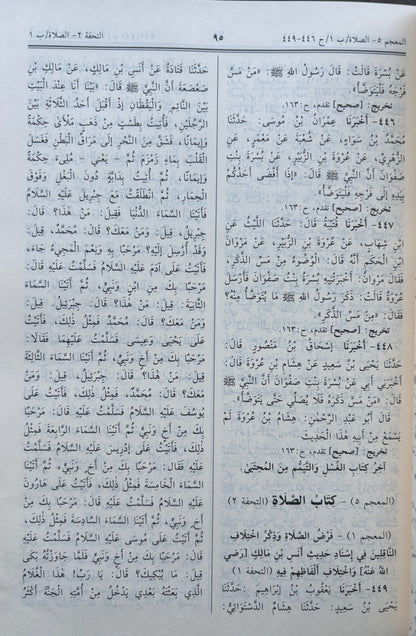 المعجم ٥- الصلاة/ب ١/ح ٤٤٦-٤٤٩
٩٥
التحفة ٢- الصلاة/ب ١
عَنْ بُسْرَةَ قَالَتْ: قَالَ رَسُولُ اللهِ ﷺ: «مَنْ مَسَّ
فَرْجَهُ فَلْيَتَوَضَّأْ».
تخريج: [صحيح] تقدم، ح:١٦٣.
٤٤٦- أَخْبَرَنَا عِمْرَانُ بْنُ مُوسَى: حَدَّثَنَا
مُحَمَّدُ بْنُ سَوَاءٍ، عَنْ شُعْبَةَ، عَنْ مَعْمَرٍ، عَنِ
الزُّهْرِيِّ، عَنْ عُرْوَةَ بْنِ الزُّبَيْرِ، عَنْ بُسْرَةَ بِنْتِ
صَفْوَانَ أَنَّ النَّبِيَّ ﷺ قَالَ: «إِذَا أَفْضَى أَحَدُكُمْ
بِيَدِهِ إِلَى فَرْجِهِ فَلْيَتَوَضَّأْ».
تخريج: [صحيح] تقدم، ح:١٦٣.
٤٤٧- أَخْبَرَنَا قُتَيْبَةُ قَالَ: حَدَّثَنَا اللَّيْثُ عَنِ
ابْنِ شِهَابٍ، عَنْ عُرْوَةَ بْنِ الزُّبَيْرِ، عَنْ مَرْوَانَ
ابْنِ الْحَكَمِ أَنَّهُ قَالَ: الْوُضُوءُ مِنْ مَسِّ الذَّكَرِ.
فَقَالَ مَرْوَانُ: أَخْبَرَتْنِيهِ بُسْرَةُ بِنْتُ صَفْوَانَ فَأَرْسَلَ
عُرْوَةُ قَالَتْ: ذَكَرَ رَسُولُ اللهِ ﷺ مَا يُتَوَضَّأُ مِنْهُ؟
فَقَالَ: «مِنْ مَسِّ الذَّكَرِ».
تخريج: [صحيح] تقدم، ح:١٦٣.
٤٤٨- أَخْبَرَنَا إِسْحَاقُ بْنُ مَنْصُورٍ قَالَ:
حَدَّثَنَا يَحْيَى بْنُ سَعِيدٍ عَنْ هِشَامِ بْنِ عُرْوَةَ قَالَ:
أَخْبَرَنِي أَبِي عَنْ بُسْرَةَ بِنْتِ صَفْوَانَ أَنَّ النَّبِيَّ ﷺ
قَالَ: «مَنْ مَسَّ ذَكَرَهُ فَلَا يُصَلِّي حَتَّى يَتَوَضَّأَ».
قَالَ أَبُو عَبْدِ الرَّحْمٰنِ: هِشَامُ بْنُ عُرْوَةَ لَمْ
يَسْمَعْ مِنْ أَبِيهِ هٰذَا الْحَدِيثَ
تخريج: [صحيح] تقدم، ح:١٦٣.
آخِرُ كِتَابِ الْغُسْلِ وَالتَّيَمُّمِ مِنَ الْمُجْتَبَى.
(المعجم ٥) - كِتَابُ الصَّلَاةِ (التحفة ٢)
(المعجم ١) - فَرْضُ الصَّلَاةِ وَذِكْرُ اخْتِلَافِ
النَّاقِلِينَ فِي إِسْنَادِ حَدِيثِ أَنَسِ بْنِ مَالِكٍ [رَضِيَ
اللهُ عَنْهُ] وَاخْتِلَافِ أَلْفَاظِهِمْ فِيهِ (التحفة ١)
٤٤٩- أَخْبَرَنَا يَعْقُوبُ بْنُ إِبْرَاهِيمَ: حَدَّثَنَا
يَحْيَى بْنُ سَعِيدٍ: حَدَّثَنَا هِشَامٌ الدَّسْتَوَائِيُّ:
حَدَّثَنَا قَتَادَةُ عَنْ أَنَسِ بْنِ مَالِكٍ، عَنْ مَالِكِ بْنِ
صَعْصَعَةَ أَنَّ النَّبِيَّ ﷺ قَالَ: «بَيْنَا أَنَا عِنْدَ الْبَيْتِ
بَيْنَ النَّائِمِ وَالْيَقْظَانِ إِذْ أَقْبَلَ أَحَدُ الثَّلَاثَةِ بَيْنَ
الرَّجُلَيْنِ، فَأُتِيتُ بِطَسْتٍ مِنْ ذَهَبٍ مَلْآنَ حِكْمَةً
وَإِيمَانًا، فَشَقَّ مِنَ النَّحْرِ إِلَى مَرَاقِّ الْبَطْنِ فَغَسَلَ
الْقَلْبَ بِمَاءِ زَمْزَمَ ثُمَّ - يَعْنِي - مُلِيءَ حِكْمَةً
وَإِيمَانًا، ثُمَّ أُتِيتُ بِدَابَّةٍ دُونَ الْبَغْلِ وَفَوْقَ
الْحِمَارِ، ثُمَّ انْطَلَقْتُ مَعَ جِبْرِيلَ عَلَيْهِ السَّلَامُ
فَأَتَيْنَا السَّمَاءَ الدُّنْيَا فَقِيلَ: مَنْ هٰذَا؟ قَالَ:
جِبْرِيلُ، قِيلَ: وَمَنْ مَعَكَ؟ قَالَ: مُحَمَّدٌ، قِيلَ:
وَقَدْ أُرْسِلَ إِلَيْهِ؟ مَرْحَبًا بِهِ وَنِعْمَ الْمَجِيءُ جَاءَ،
فَأَتَيْتُ عَلَى آدَمَ عَلَيْهِ السَّلَامُ فَسَلَّمْتُ عَلَيْهِ قَالَ:
مَرْحَبًا بِكَ مِنِ ابْنٍ وَنَبِيٍّ، ثُمَّ أَتَيْنَا السَّمَاءَ
الثَّانِيَةَ قِيلَ: مَنْ هٰذَا؟ قَالَ: جِبْرِيلُ، قِيلَ:
وَمَنْ مَعَكَ؟ قَالَ: مُحَمَّدٌ، فَمِثْلُ ذٰلِكَ، فَأَتَيْتُ
عَلَى يَحْيَى وَعِيسَى فَسَلَّمْتُ عَلَيْهِمَا فَقَالَا:
مَرْحَبًا بِكَ مِنْ أَخٍ وَنَبِيٍّ، ثُمَّ أَتَيْنَا السَّمَاءَ الثَّالِثَةَ
قِيلَ: مَنْ هٰذَا؟ قَالَ: جِبْرِيلُ، قِيلَ: وَمَنْ
مَعَكَ؟ قَالَ: مُحَمَّدٌ، فَمِثْلُ ذٰلِكَ، فَأَتَيْتُ عَلَى
يُوسُفَ عَلَيْهِ السَّلَامُ فَسَلَّمْتُ عَلَيْهِ قَالَ: مَرْحَبًا
بِكَ مِنْ أَخٍ وَنَبِيٍّ ثُمَّ أَتَيْنَا السَّمَاءَ الرَّابِعَةَ فَمِثْلُ
ذٰلِكَ، فَأَتَيْتُ عَلَى إِدْرِيسَ عَلَيْهِ السَّلَامُ فَسَلَّمْتُ
عَلَيْهِ فَقَالَ: مَرْحَبًا بِكَ مِنْ أَخٍ وَنَبِيٍّ، ثُمَّ أَتَيْنَا
السَّمَاءَ الْخَامِسَةَ فَمِثْلُ ذٰلِكَ، فَأَتَيْتُ عَلَى هَارُونَ
عَلَيْهِ السَّلَامُ فَسَلَّمْتُ عَلَيْهِ قَالَ: مَرْحَبًا بِكَ مِنْ
أَخٍ وَنَبِيٍّ، ثُمَّ أَتَيْنَا السَّمَاءَ السَّادِسَةَ فَمِثْلُ ذٰلِكَ،
ثُمَّ أَتَيْتُ عَلَى مُوسَى عَلَيْهِ السَّلَامُ فَسَلَّمْتُ عَلَيْهِ
فَقَالَ: مَرْحَبًا بِكَ مِنْ أَخٍ وَنَبِيٍّ فَلَمَّا جَاوَزْتُهُ بَكَى
قِيلَ: مَا يُبْكِيكَ؟ قَالَ: يَا رَبِّ! هٰذَا الْغُلَامُ
الَّذِي بَعَثْتَهُ بَعْدِي يَدْخُلُ مِنْ أُمَّتِهِ الْجَنَّةَ أَكْثَرُ